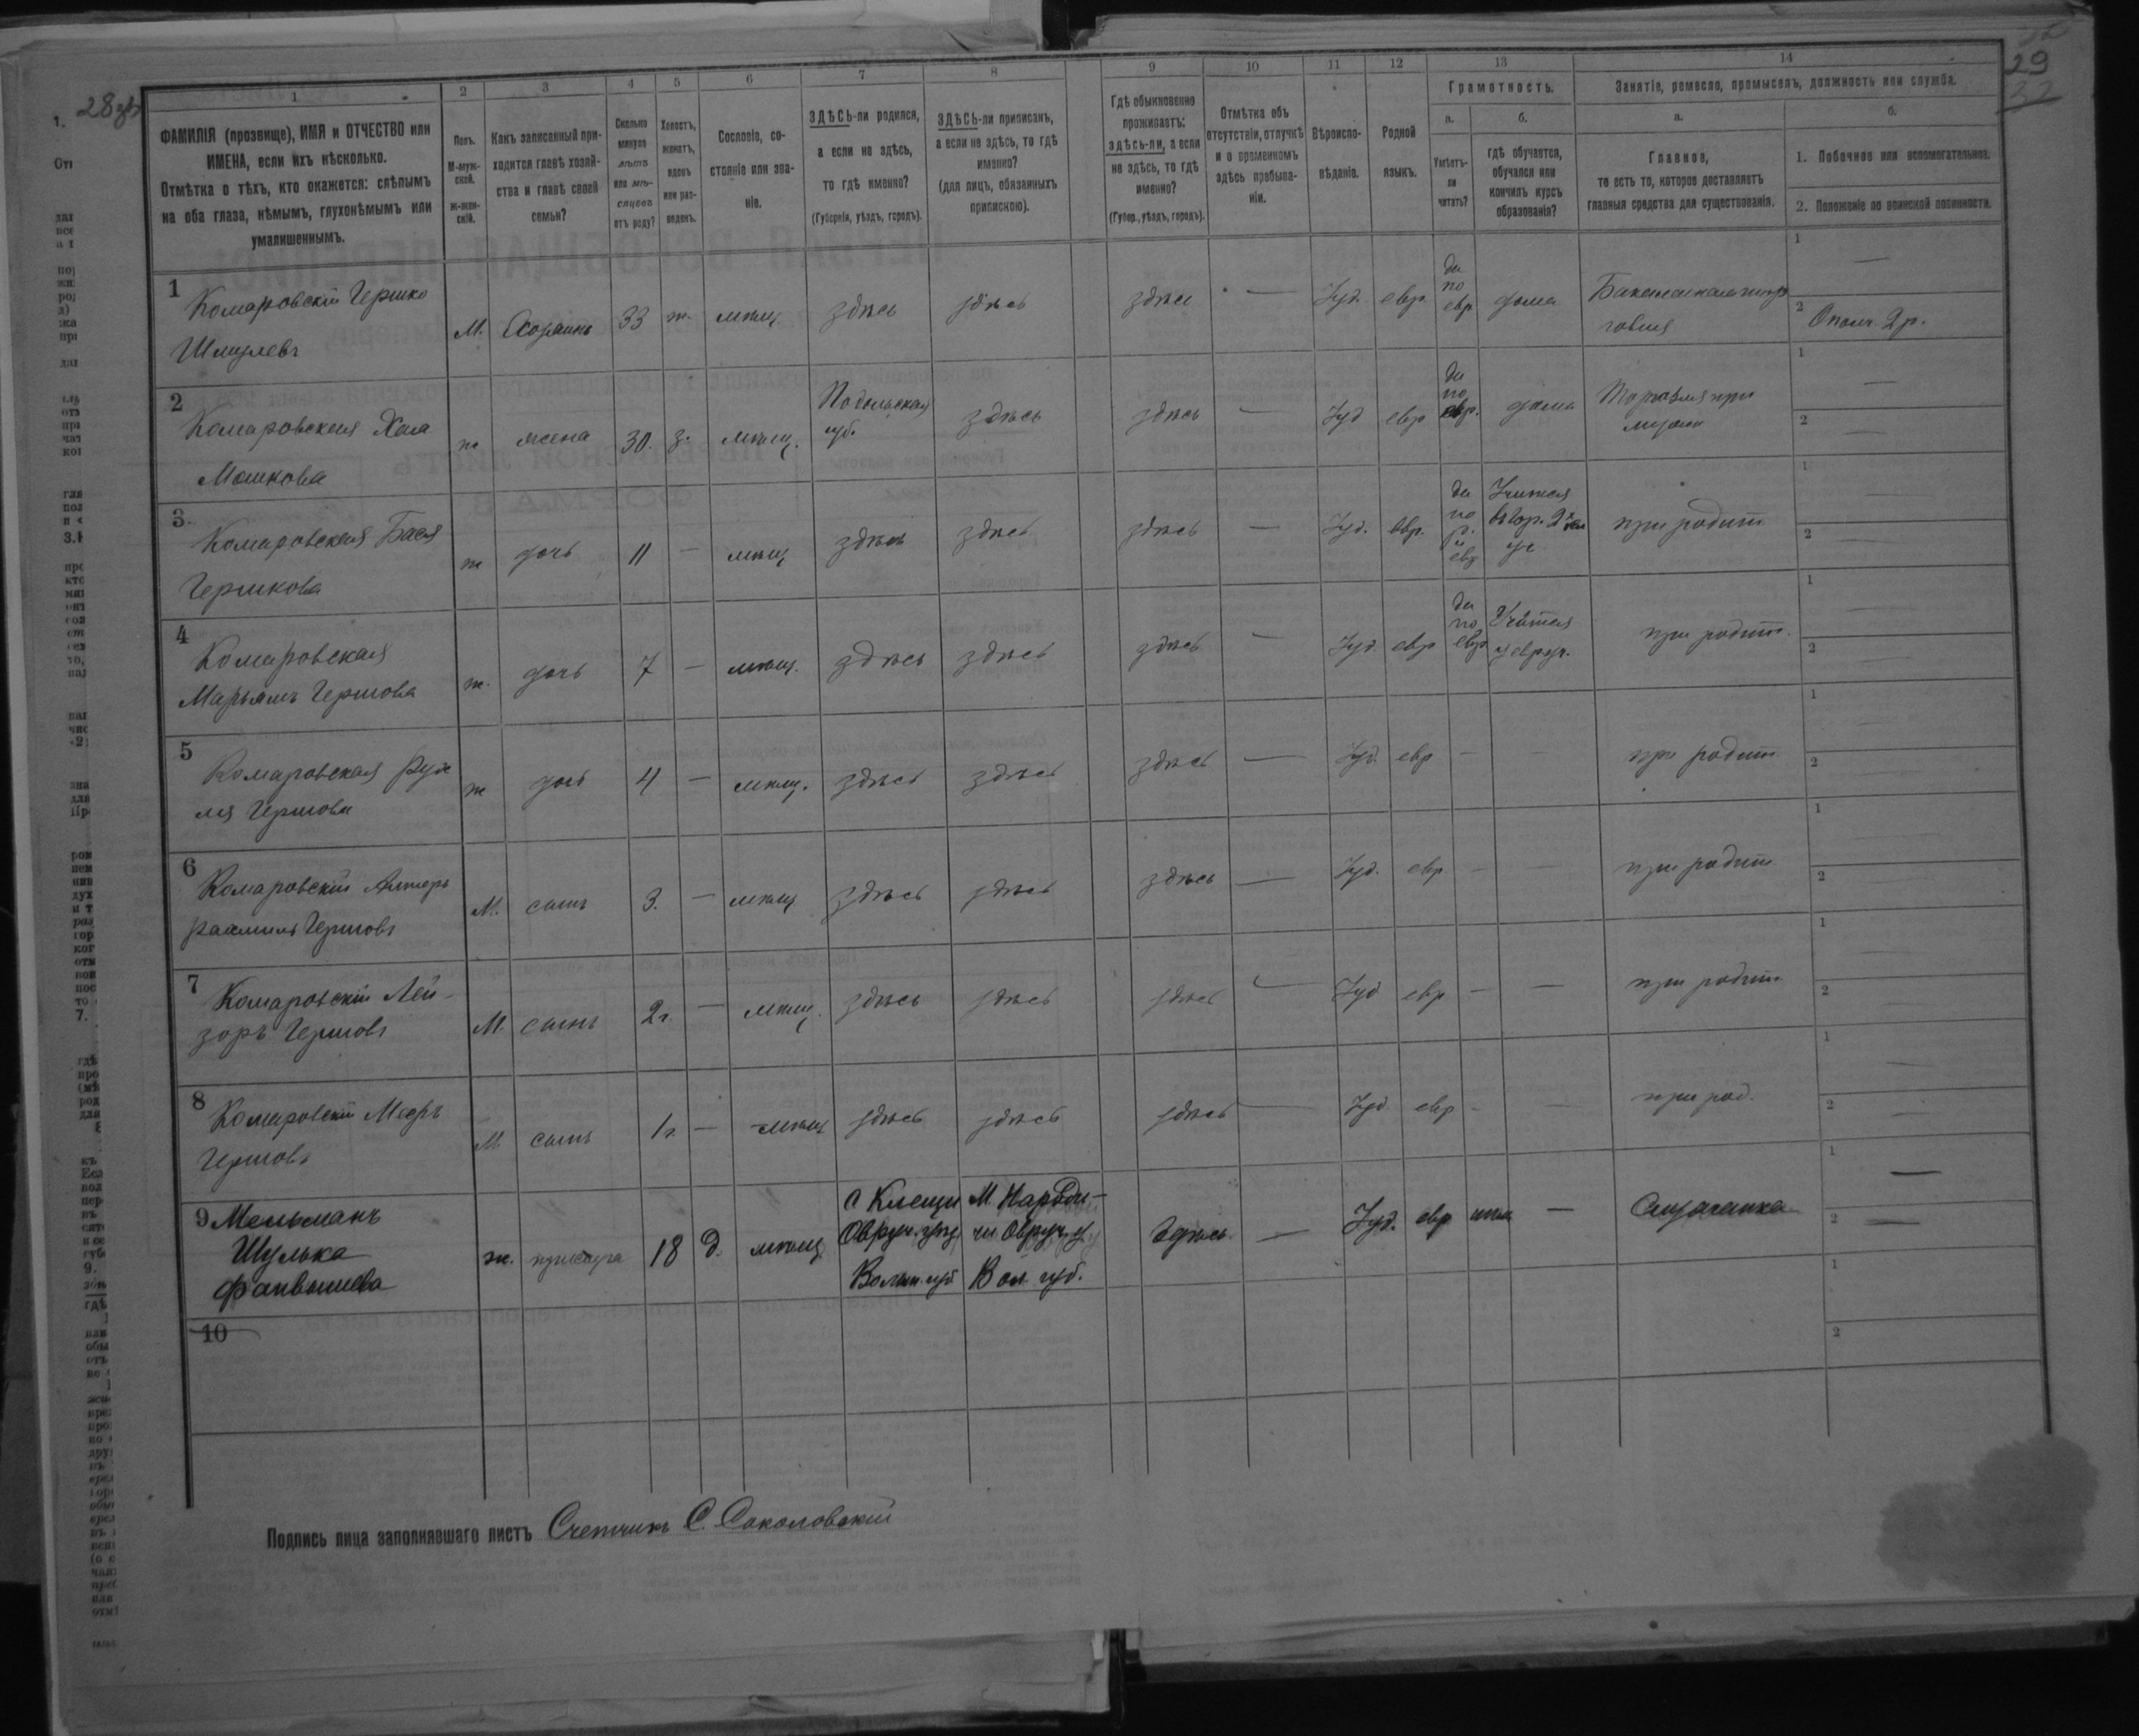 28
29
32
1 2 3 4 5 6 7 8 9 10 11 12 13 14
ФАМИЛІЯ (прозвище), ИМЯ и ОТЧЕСТВО или
ИМЕНА, если ихъ нѣсколько.
Отмѣтка о тѣхъ, кто окажется: слѣпымъ
на оба глаза, нѣмымъ, глухонѣмымъ или
умалишеннымъ.
Полъ.
М-муж-
ской.
ж-жен-
скій.
Какъ записанный при-
ходится главѣ хозяй-
ства и главѣ своей
семьи?
Сколько
минуло
лѣтъ
или мѣ-
сяцевъ
отъ роду?
Холостъ,
женатъ,
вдовъ
или раз-
веденъ.
Сословіе, со-
стояніе или зва-
ніе.
ЗДѢСЬ-ли родился,
а если не здѣсь,
то гдѣ именно?
(Губернія, уѣздъ, городъ).
ЗДѢСЬ-ли приписанъ,
а если не здѣсь, то гдѣ
именно?
(для лицъ, обязанныхъ
припискою).
Гдѣ обыкновенно
проживаетъ:
здѣсь-ли, а если
не здѣсь, то гдѣ
именно?
(Губер., уѣздъ, городъ).
Отмѣтка объ
отсутствіи, отлучкѣ
и о временномъ
здѣсь пребыва-
ніи.
Вѣроиспо-
вѣданіе.
Родной
языкъ.
Грамотность.
а.
Умѣетъ-
ли
читать?
б.
гдѣ обучается,
обучался или
кончилъ курсъ
образованія?
Занятіе, ремесло, промыселъ, должность или служба.
а.
Главное,
то есть то, которое доставляетъ
главныя средства для существованія.
б.
1. Побочное или вспомогательное.
2. Положеніе по воинской повинности.
1 Комаровскій Гершко
Шмулевъ
М. Хозяинъ 33 ж. мѣщ. здѣсь здѣсь здѣсь — Іуд. евр. да по евр. дома Бакалейная тор
говля
1 —
2 Ополч. 2 р.
2 Комаровская Хая
Мошкова
ж жена 30. з. мѣщ. Подольская
губ.
здѣсь здѣсь — Іуд евр да по евр. дома Торговля при
мужѣ
1 —
2 —
3. Комаровская Бася
Гершкова
ж дочь 11 — мѣщ здѣсь здѣсь здѣсь — Іуд. евр. да по р. и евр Учится
въ гор. 2х кл
уч
при родит
1 —
2 —
4 Комаровская
Марьямъ Гершова
ж. дочь 7 — мѣщ. здѣсь здѣсь здѣсь — Іуд евр да по евр Учится
у евр уч.
при родит.
1 —
2 —
5 Комаровская Рух
ля Гершова
ж дочь 4 — мѣщ. здѣсь здѣсь здѣсь — Іуд евр — — при родит
1 —
2 —
6 Комаровскій Альтеръ
Гершовъ
М. сынъ 3. — мѣщ здѣсь здѣсь здѣсь — Іуд. евр — — при родит
1 —
2 —
7 Комаровскій Лей-
зоръ Гершовъ
М. сынъ 2 г. — мѣщ. здѣсь здѣсь здѣсь — Іуд евр — — при родит
1 —
2 —
8 Комаровскій Мееръ
Гершовъ
М. сынъ 1 г. — мѣщ здѣсь здѣсь здѣсь — Іуд евр — — при род.
1 —
2 —
9 Мельманъ
Шулька
ж. прислуга 18 д. мѣщ. с Клещи
Овруч. уѣзд
Волын. губ
М. Народи-
чи Овруч. у
Вол. губ.
здѣсь — Іуд. евр нѣтъ — Служанка
1 —
2 —
10
1
2
Подпись лица заполнявшаго листъ Счетчикъ С. Соколовскій